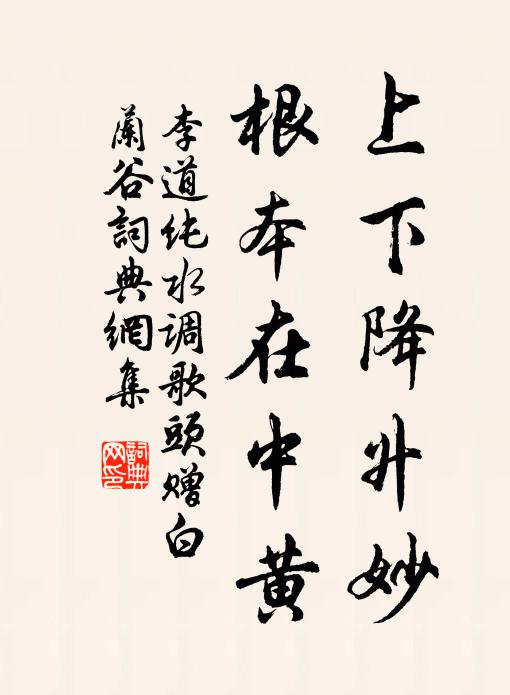 上下降升妙
根本在中黄
李道纯水调歌頭赠白
蘭谷詞典網集
詞典
网印